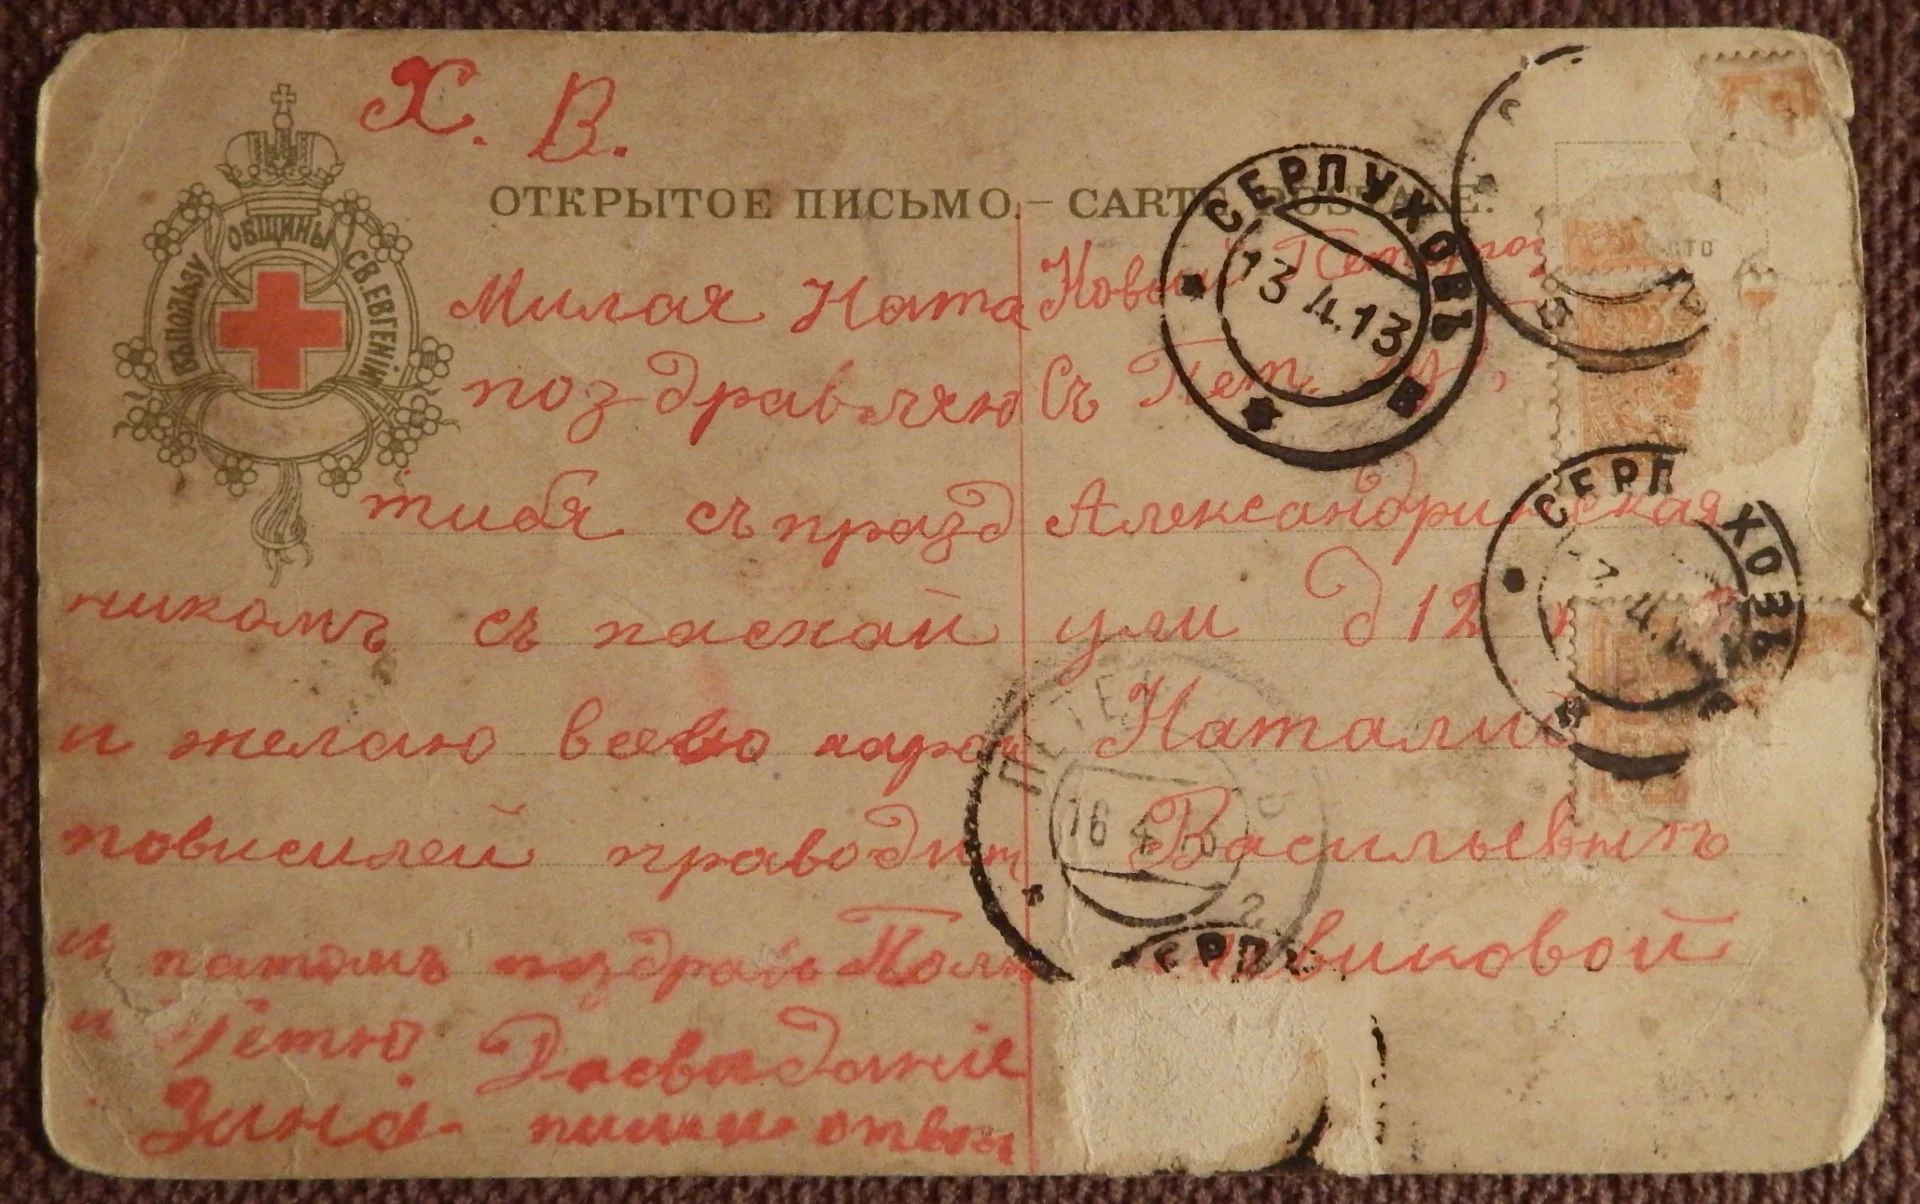 Х. В.
ВЪ ПОЛЬЗУ ОБЩИНЫ СВ. ЕВГЕНІИ
ОТКРЫТОЕ ПИСЬМО. – CARTE POSTALE.
Милая Ната
поздравляю
тибя съ празд
никомъ съ пасхай
и желаю всево харо
повиселей праводит
и патомъ поздравь Полю
и Петю Досвадание
Зина. пиши отвеи
Новый Петергоф
Съ Пет.
Александринская
ули д 12
Наталии
Васильевнъ
новиковой
СЕРПУХОВЪ
13 4.13
СЕРП ХОВЪ
4.
ПЕТЕ
16 4 13
2
ЕРПУ